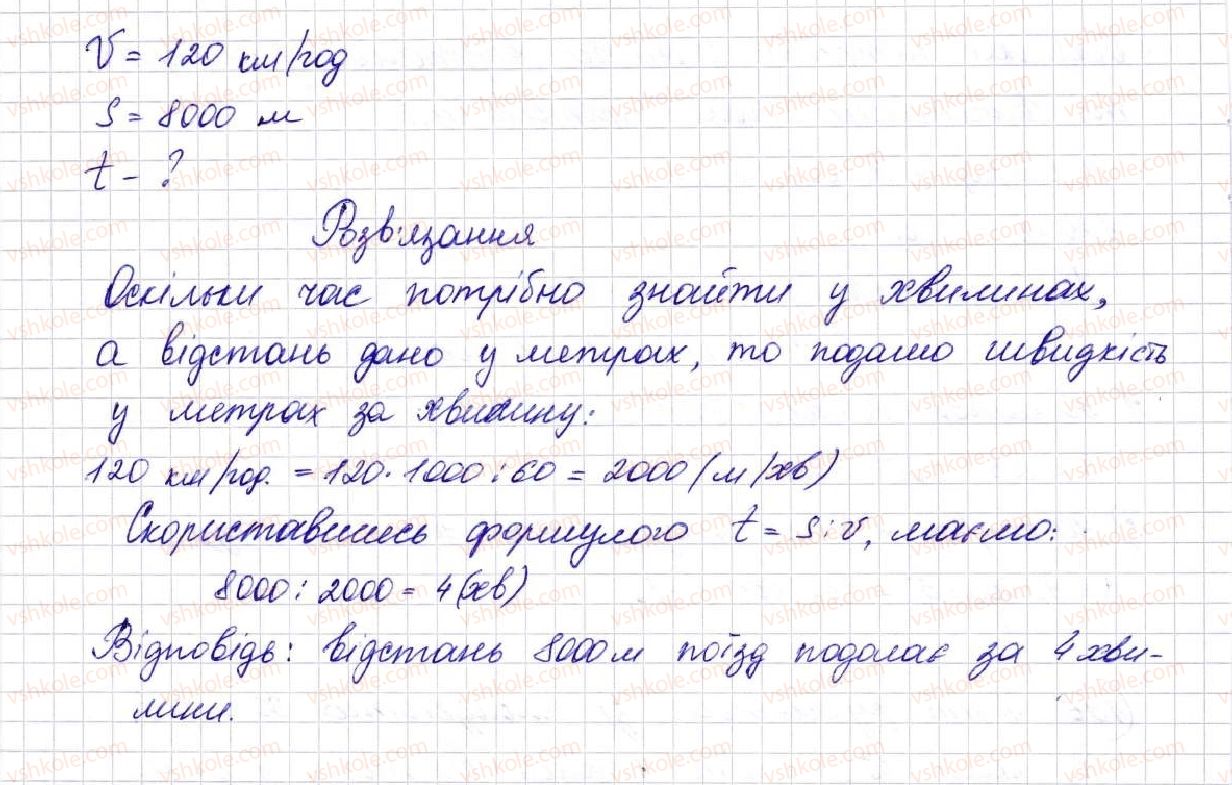 V = 120 км/год
S = 8000 м
t - ?
Розв'язання
Оскільки час потрібно знайти у хвилинах,
а відстань дано у метрах, то подамо швидкість
у метрах за хвилину:
120 км/год. = 120 · 1000 : 60 = 2000 (м/хв)
Скориставшись формулою t = S : v, маємо:
8000 : 2000 = 4 (хв)
Відповідь: відстань 8000 м поїзд подолає за 4 хви-
лини.
vshkole.com